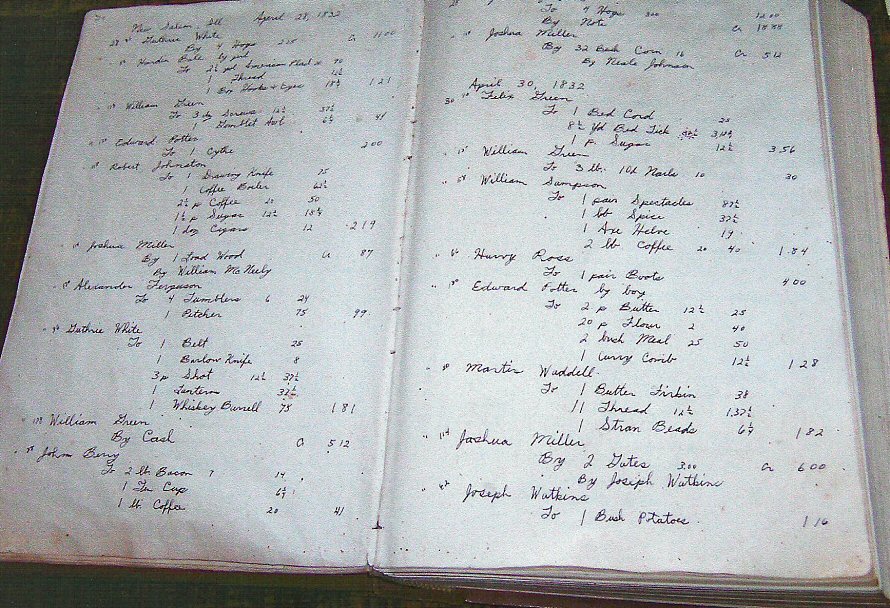 New Salem, Ill April 28, 1832
28 Guthrie White
By 4 Hogs 275 Cr 11 00
" Harden Bale by
To 2½ yd American Plad 70
Thread 12½
1 Box Hooks & Eyes 18¾ 1 21
" William Green
To 3 dz Screws 12½ 37½
Gimblet Awl 6¼
" Edward Potter
To 1 Cythe 2 00
" Robert Johnston
To 1 Drawing Knife 75
1 Coffee Boiler 62½
2½ p Coffee 20 50
1½ p Sugar 12½ 18¾
1 doz Cigars 12 2 19
" Joshua Miller
By 1 Load Wood Cr 87
By William McNeely
" Alexander Ferguson
To 4 Tumblers 6 24
1 Pitcher 75 99
" Guthrie White
To 1 Belt 25
1 Barlow Knife 8
3 p Shot 12½ 37½
1 Lantern 37½
1 Whiskey Barrell 75 1 81
" William Green
By Cash Cr 5 12
" John Berry
To 2 lb Bacon 7 14
1 Tin Cup 6¼
1 lb Coffee 20 41
To 4 Hogs 300 12 00
By Note Cr 18 88
" Joshua Miller
By 32 Bush Corn 16 Cr 5 12
By Neale Johnson
April 30, 1832
30 Felix Green
To 1 Bed Cord 25
8½ yd Bed Tick 37½
1 p. Sugar 12½ 3 56
" William Green
To 3 lb. 10d Nails 10 30
" William Sampson
To 1 pair Spectacles 87½
1 lb Spice 37½
1 Axe Helve 19
2 lb Coffee 20 40 1 84
" Harvy Ross
To 1 pair Boots 4 00
" Edward Potter by boy
To 2 p Butter 12½ 25
20 p Flour 2 40
2 bush Meal 25 50
1 Curry Comb 12½ 1 28
" Martin Waddell
To 1 Butter Firkin 38
11 Thread 12½ 1.37½
1 Stran Beads 6¼ 1 82
" Joshua Miller
By 2 Gates 3.00 Cr 6 00
By Joseph Watkins
" Joseph Watkins
To 1 Bush Potatoes 1 16